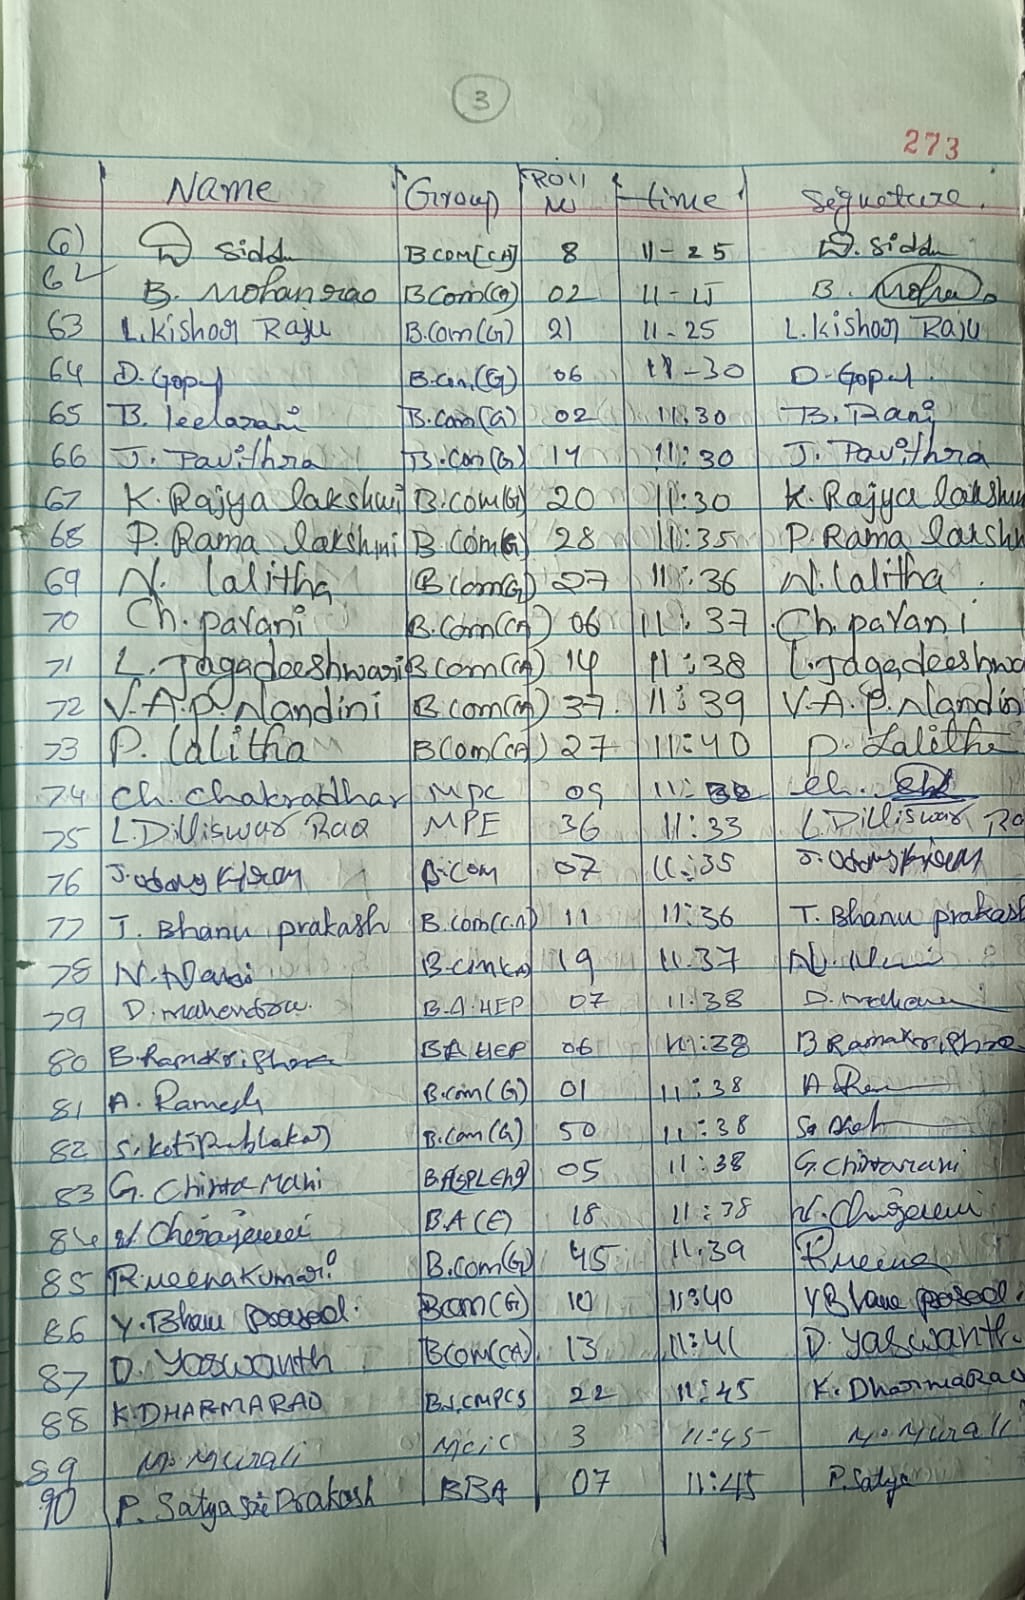 3
273
Name Group Roll No time Segneture.
61 Siddu BCOM[CA] 8 11-25 Siddu
62 B. Mohanrao BCom(G) 02 11-15 B. Mohan
63 L.Kishor Raju B.Com(G) 21 11-25 L.Kishor Raju
64 D.Gopal B.Com(G) 06 11-30 D-Gopal
65 B. leelarani B.Com(G) 02 11:30 B. Rani
66 J. Pavithra B.Com(G) 14 11:30 J. Pavithra
67 K. Rajya lakshmi B.com(G) 20 11:30 K. Rajya lakshm
68 P. Rama lakshmi B.com(G) 28 11:35 P. Rama laksh
69 N. lalitha B.com(G) 27 11:36 N. lalitha
70 Ch. pavani B.com(CA) 06 11:37 Ch. pavani
71 L. Jagadeeshwari B com(CA) 14 11:38 L. Jagadeeshwa
72 V.A.P. Nandini B.com(CA) 37 11:39 V.A.P. Nandin
73 P. lalitha BCom(CA) 27 11:40 P. Lalitha
74 Ch. Chakradhar MPC 09 11: Ch.
75 L.Dilliswar Rao MPE 36 11:33 L Dilliswar Ra
76 J. B.COM 07 11:35 J.
77 T. Bhanu prakash B.com(C.A) 11 11:36 T. Bhanu prakash
78 N. Mani 19 11.37 N. Mani
79 D. mahendra B.A.HEP 07 11:38 D.
80 B.Ramakrishna BA HEP 06 11:38 B Ramakrishna
81 A. Ramesh B.com(G) 01 11:38 A
82 S. B.Com(G) 50 11:38
83 G. Chinta Mani 05 11:38 G. Chintamani
84 B.A(E) 18 11:38
85 R.meenakumari B.Com(G) 45 11:39 R meena
86 Y. Bhanu Prasad. BCom(G) 10 11:40 Y Bhanu Prasad.
87 D. Yaswanth BCom(CA) 13 11:41 D. Yaswanth.
88 K.DHARMARAO 22 11:45 K. DharmaRao
89 M. Murali 3 11:45 M. Murali
90 P. Satya Sai Prakash BBA 07 11:45 P. Satya